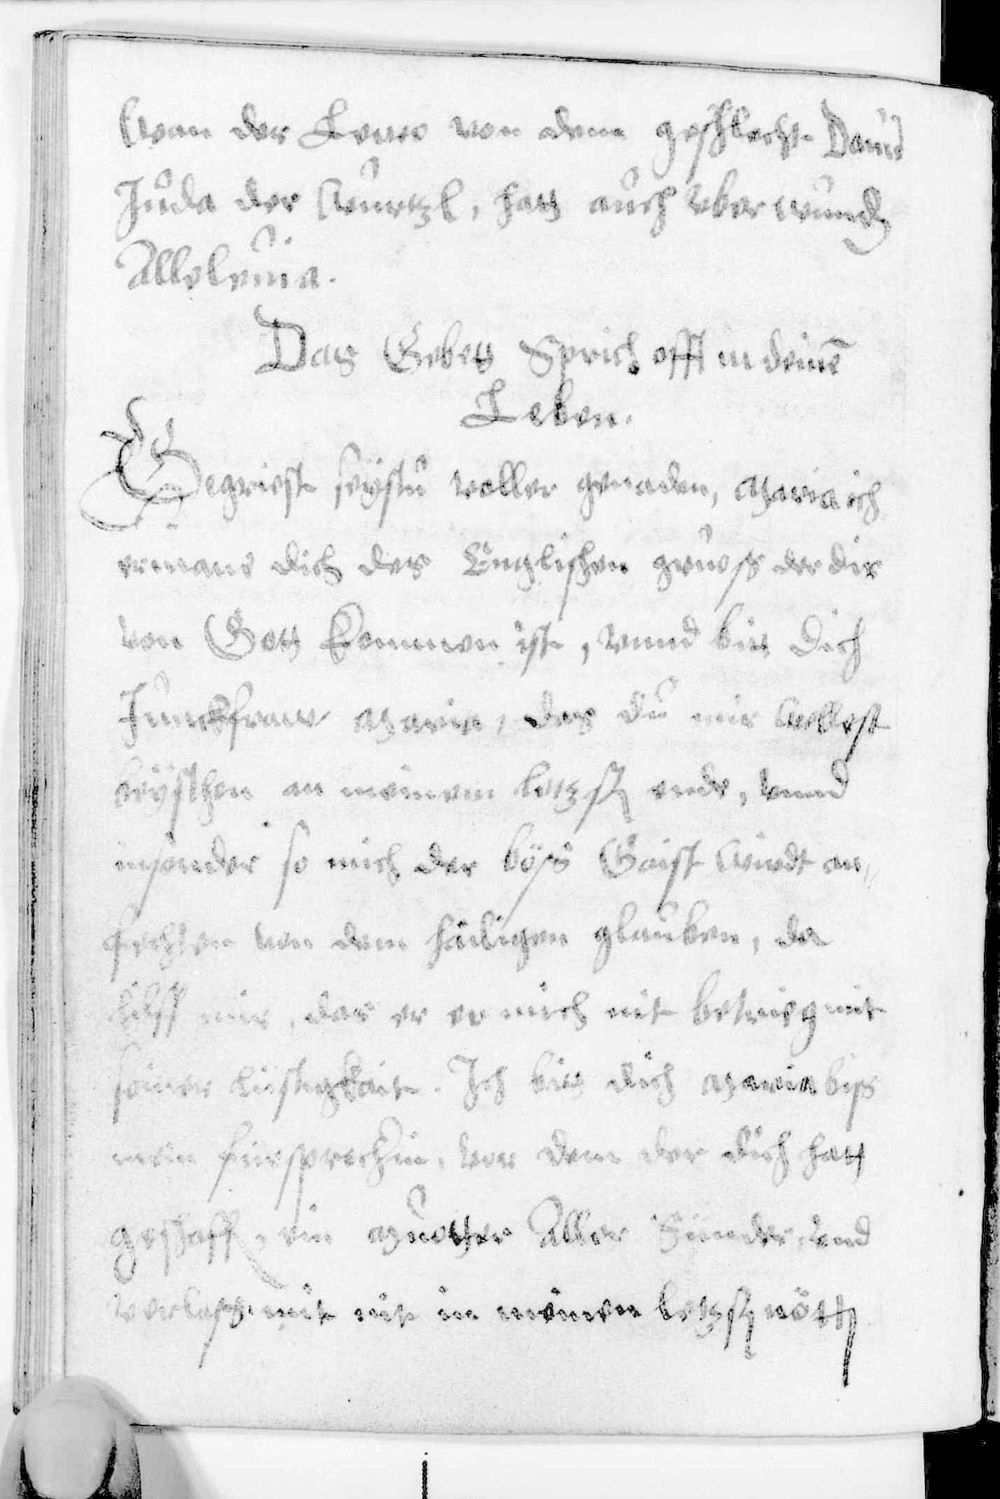 Wan der Lewe von dem geschlecht Dauid
Juda der Wurtzl, hatt auch vberwundn
Alleleuia.
Das Gebett Sprich offt in deinē
Leben.
Gegriest seÿstu voller genaden, Maria ich
ermane dich des Englischen gruess der dir
von Gott kommen ist, vnnd bitt dich
Junckfraw Maria, das du mir wellest
beÿsthen an meinem letzstn ende, vnnd
insonder so mich der böss Gaist wirdt an„
fechten von dem hailigen glauben, da
hilff mir, das er er mich nit betrieg mit
seiner listigkait. Ich bitt dich Maria biss
mein fürsprechin, vor dem der dich hatt
geschaffn, ein Muotter Aller Sünder, vnd
verlass mit nit in meinen letzstn nöttn